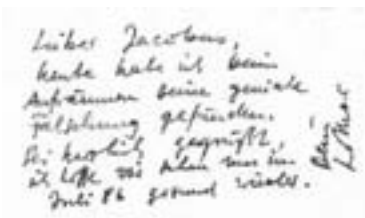 Lieber Jacobus,
heute habe ich beim
Aufräumen deine geniale
Fälschung gefunden.
Sei herzlich gegrüßt,
ich hoffe wir sehen uns im
Juli 86 gesund wieder.
Dein